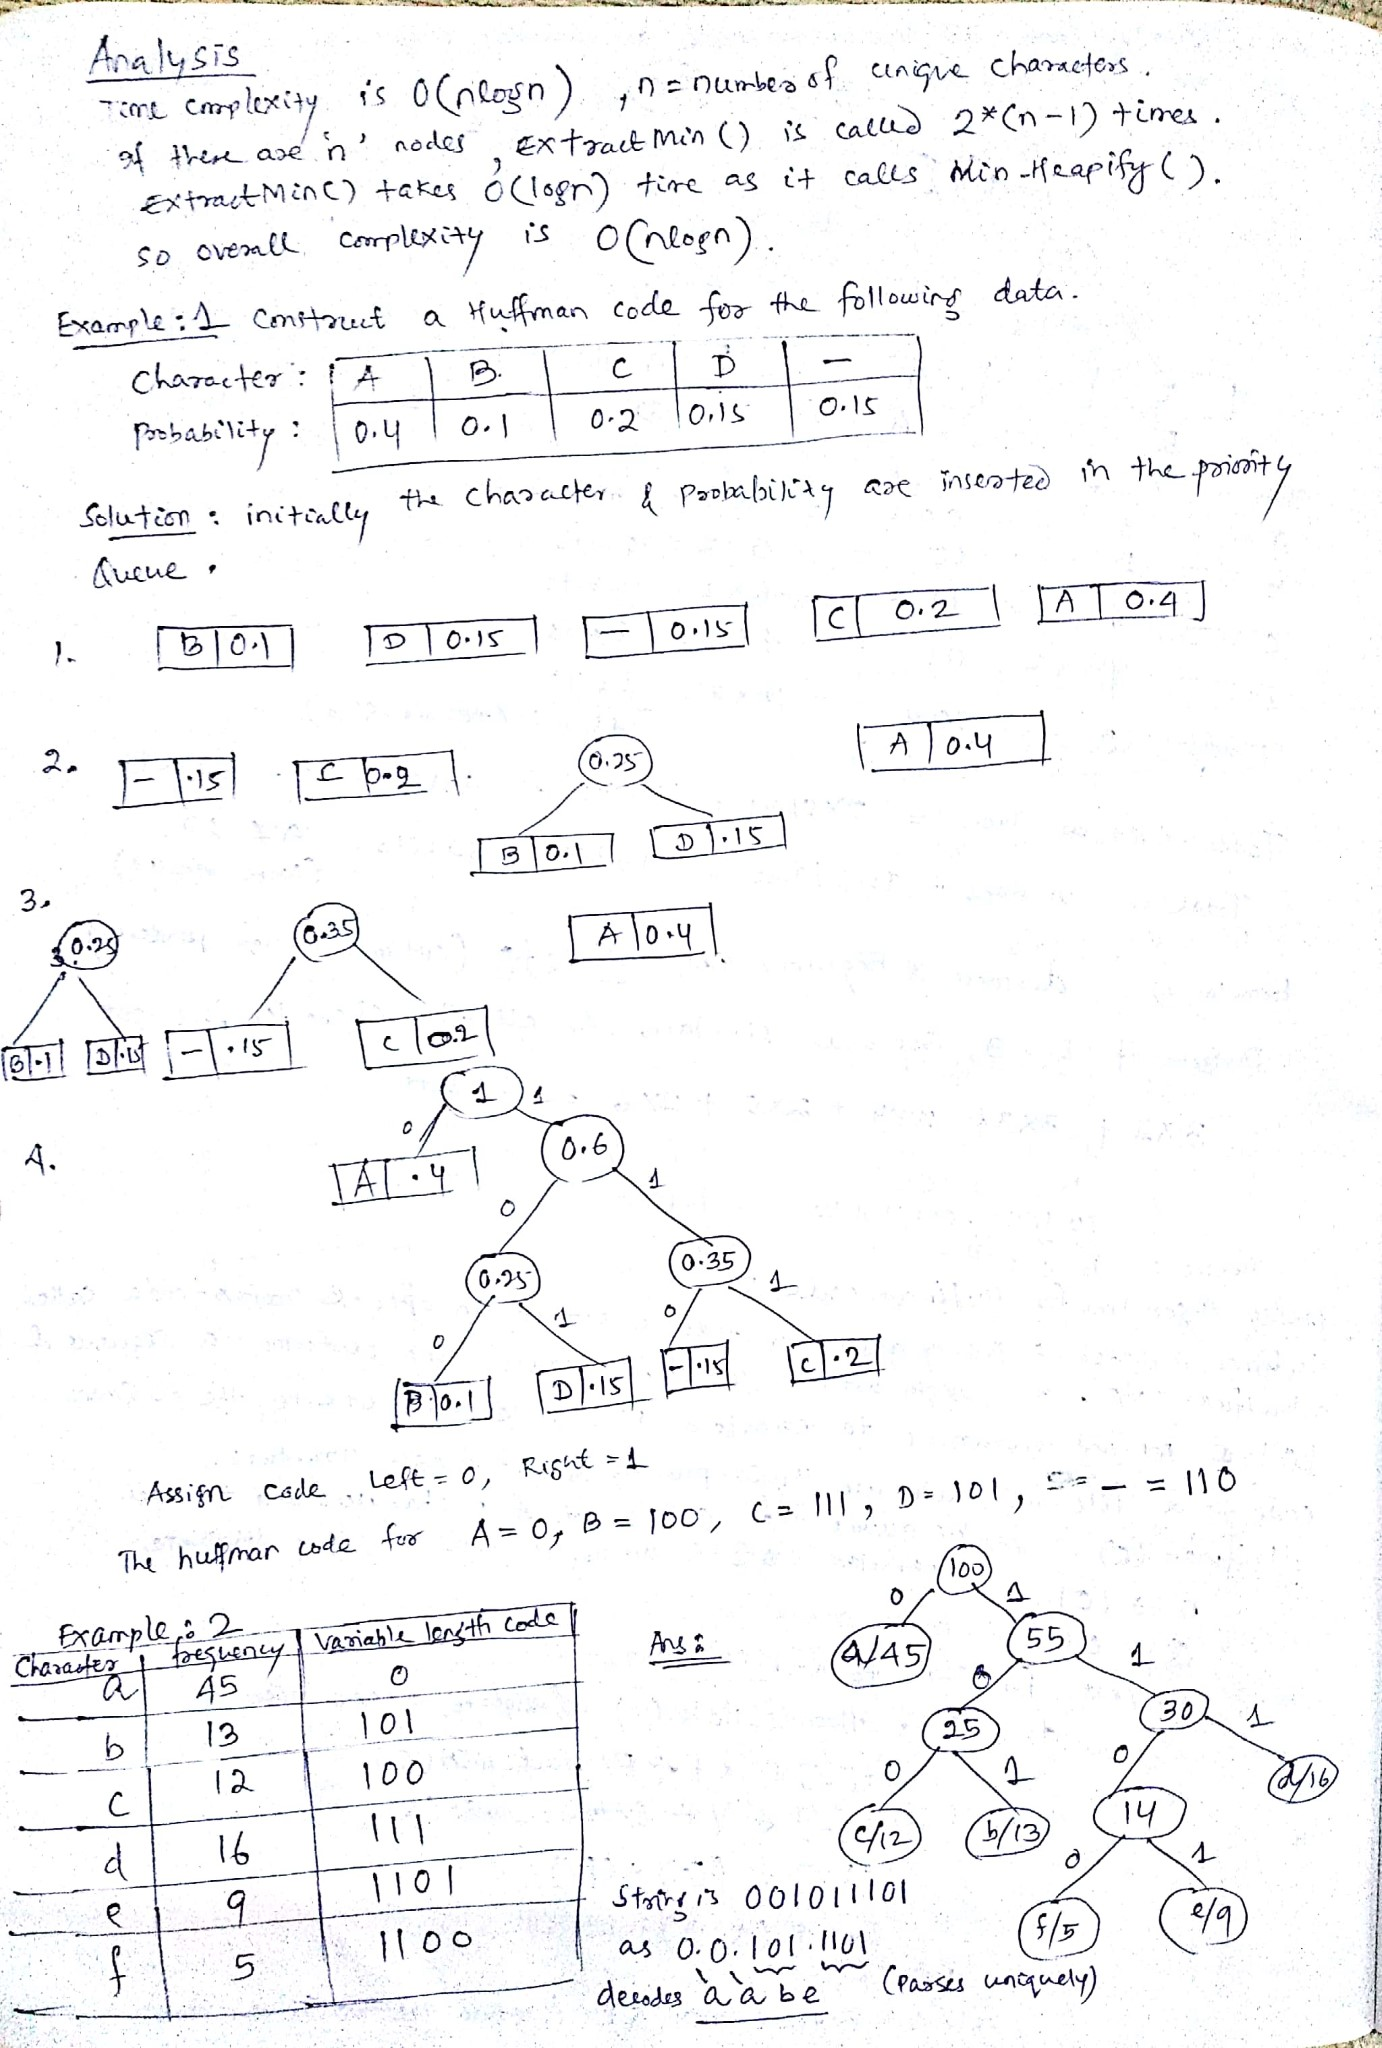 Analysis
Time complexity is O(nlogn) , n = number of unique characters.
If there are 'n' nodes, ExtractMin() is called 2*(n-1) times.
ExtractMin() takes O(logn) time as it calls Min-Heapify().
so overall complexity is O(nlogn).
Example: 1 Construct a Huffman code for the following data.
Character: A B. C D -
Probability: 0.4 0.1 0.2 0.15 0.15
Solution: initially the character & probability are inserted in the priority
Queue.
1. B 0.1 D 0.15 - 0.15 C 0.2 A 0.4
2. - .15 C 0.2 0.25 A 0.4
B 0.1 D .15
3.
0.25 0.35 A 0.4
B .1 D .15 - .15 C 0.2
4.
1
0 1
A .4 0.6
0 1
0.25 0.35
0 1 0 1
B 0.1 D .15 - .15 C .2
Assign code Left = 0, Right = 1
The huffman code for A = 0, B = 100, C = 111, D = 101, - = 110
Example: 2
Character frequency Variable length code
a 45 0
b 13 101
c 12 100
d 16 111
e 9 1101
f 5 1100
Ans:
100
0 1
a/45 55
0 1
25 30
0 1 0 1
c/12 b/13 14 d/16
0 1
f/5 e/9
String is 001011101
as 0.0.101.1101
decodes a a b e (Parses uniquely)